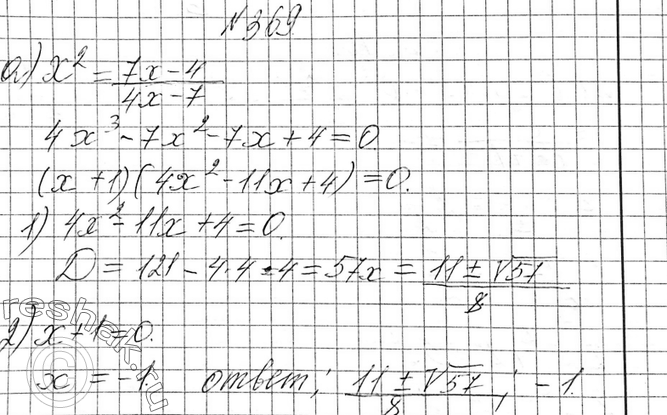 №369.
а) x² = (7x-4)/(4x-7)
4x³-7x²-7x+4=0
(x+1)(4x²-11x+4)=0.
1) 4x²-11x+4=0.
D=121-4·4·4=57x=(11±√57)/8
2) x+1=0.
x=-1. ответ; (11±√57)/8; -1.